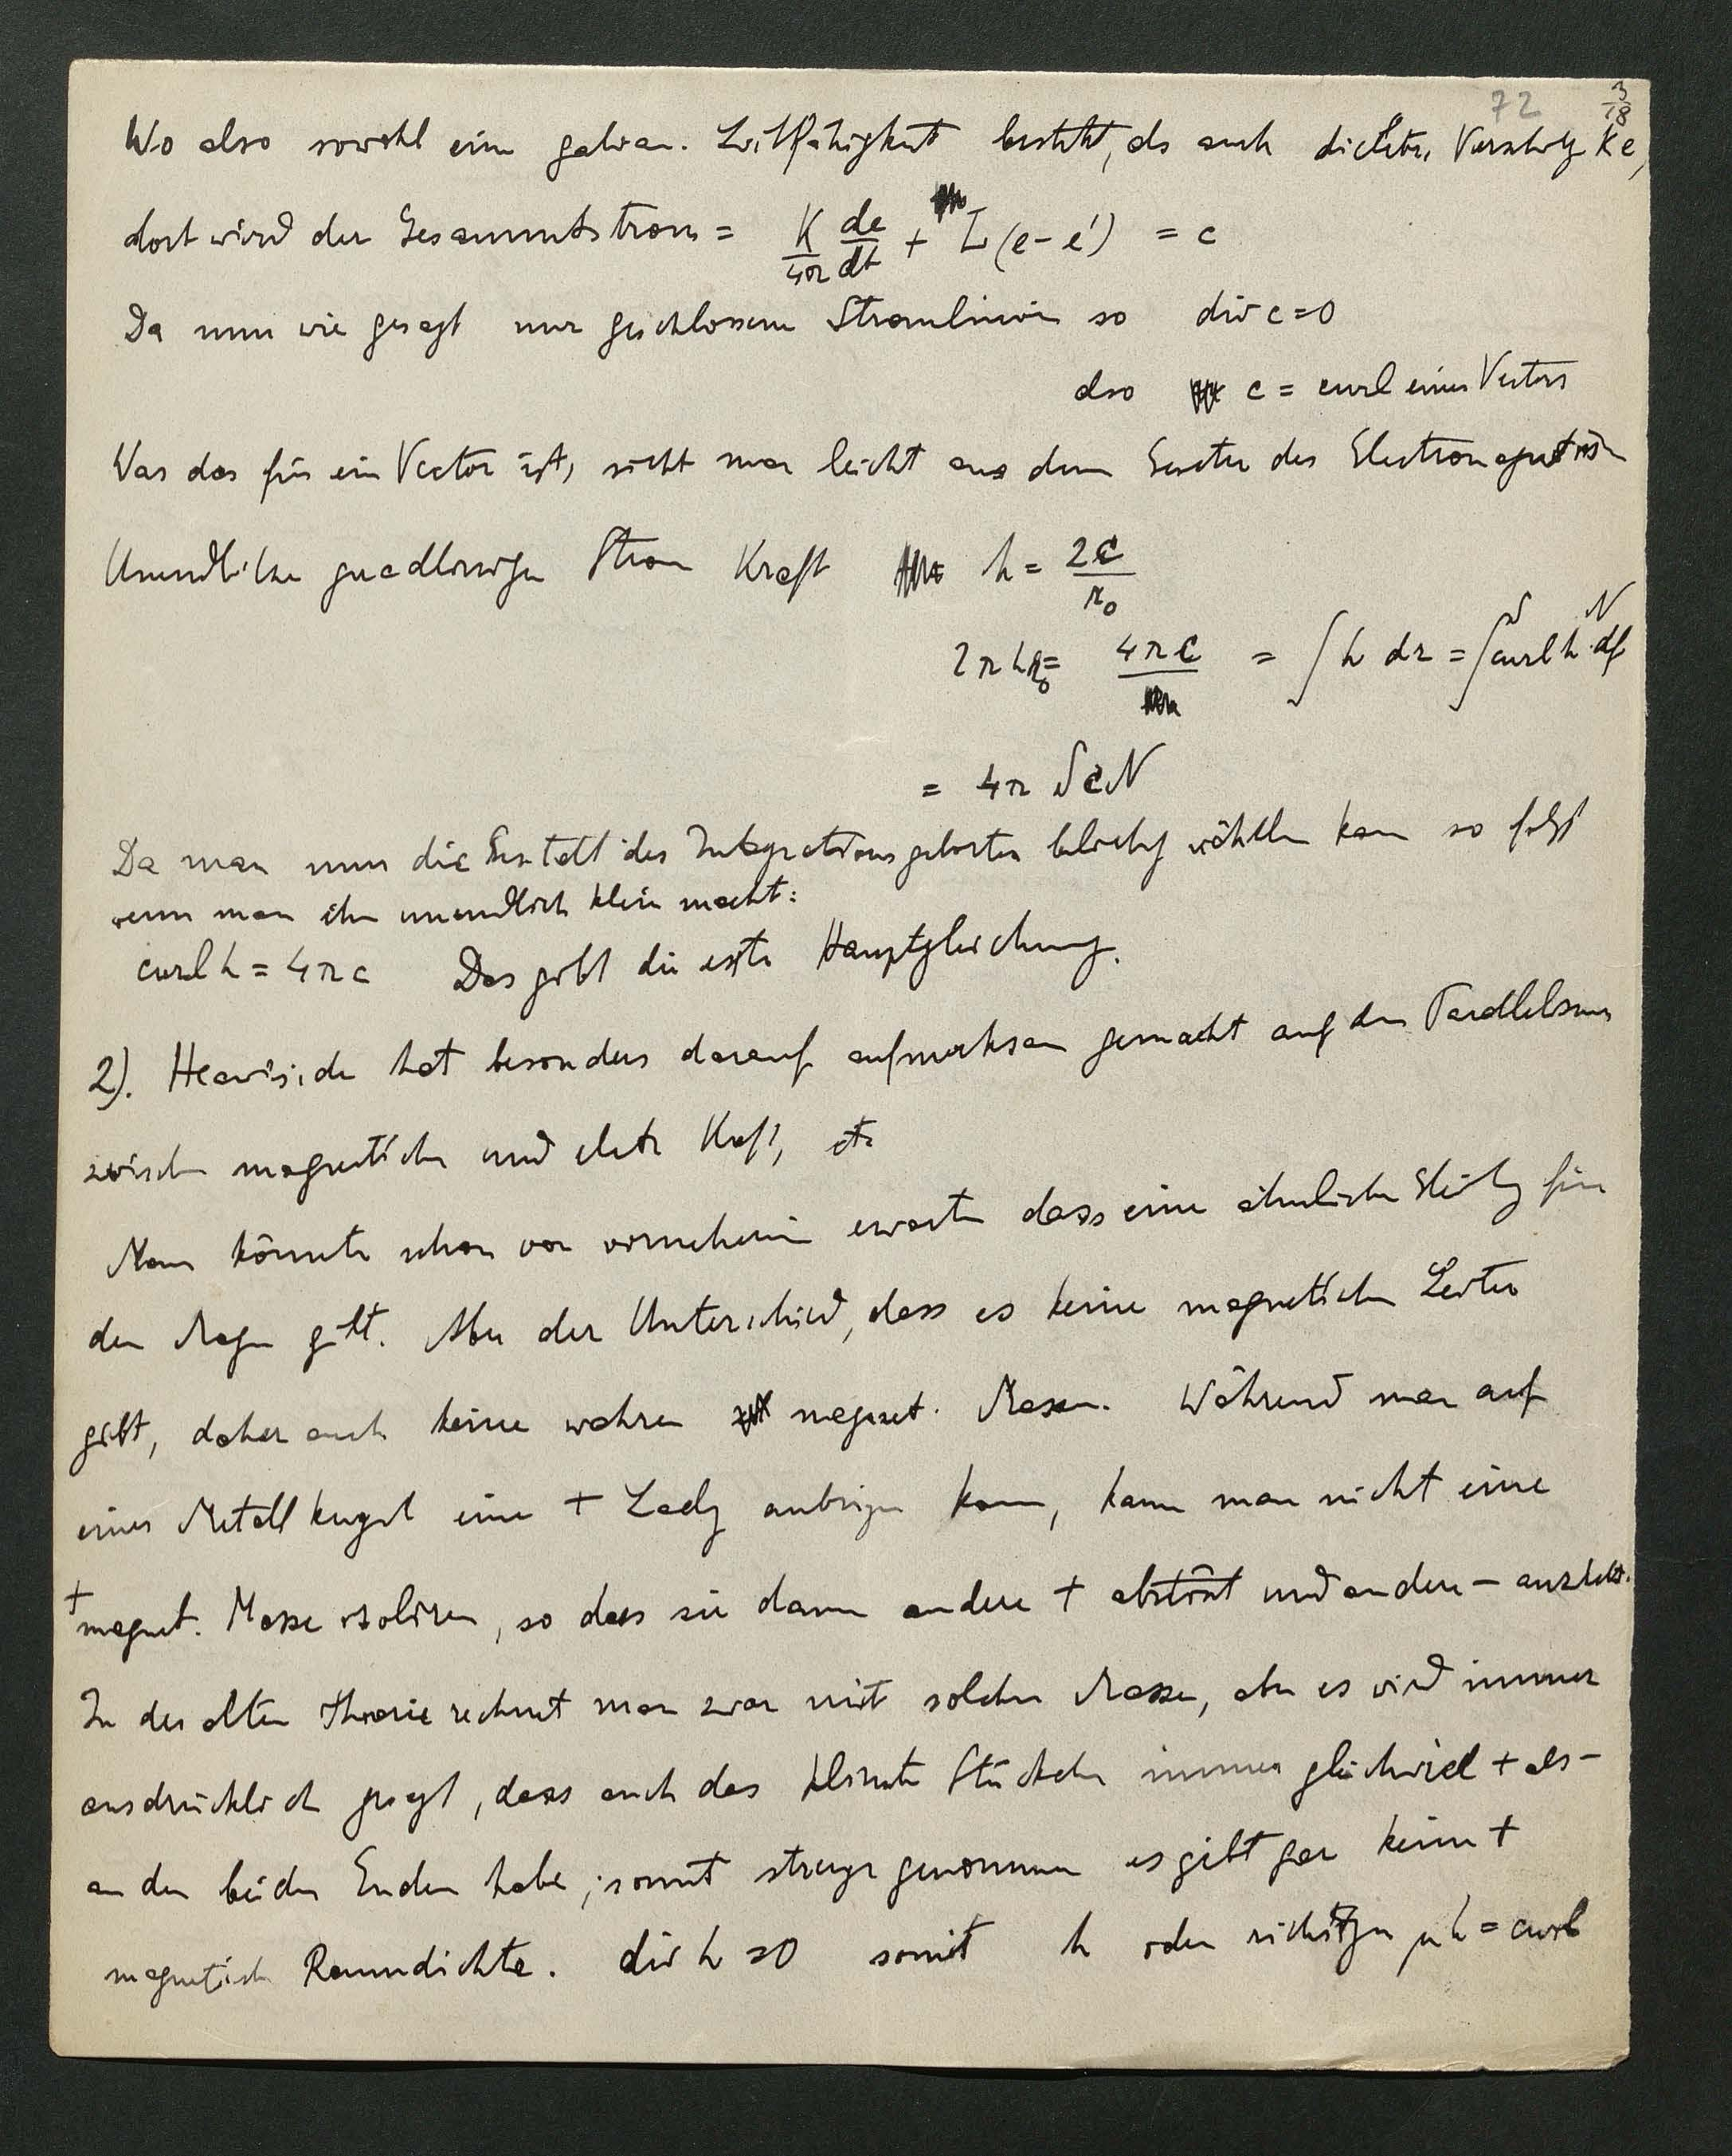 72 3/18
Wo also sowohl eine galvan. Leitfähigkeit besteht, als auch dielektr. Verschbg Ke,
dort wird der Gesammtstrom = K/4π de/dt + L(e-e') = c
Da nun wie gesagt nur geschlossene Stromlinien so div c=0
also c = curl eines Vectors
Was das für ein Vector ist, sieht man leicht aus dem Gesetze des
Unendlicher geradliniger Strom Kraft h = 2C/r₀
2πhr₀ = 4πC = ∫h dr = ∫ScurlhN df
= 4π ScN
Da man nun die Gestalt des Integrationsgebietes beliebig wählen kann so folgt
wenn man ihn unendlich klein macht:
curl h = 4πc Das gibt die erste Hauptgleichung.
2). Heaviside hat besonders darauf aufmerksam gemacht auf den Parallelismus
zwischen magnetischer und elektr Kraft, etc
Man könnte schon von vorneherein erwarten dass eine ähnliche Gleichg für
den Magn gilt. Aber der Unterschied, dass es keine magnetischen Leiter
gibt, daher auch keine wahren magnet. Massen. Während man auf
einer Metallkugel eine + Ladg anbringen kann, kann man nicht eine
+ magnet. Masse isoliren, so dass sie dann andere + abstösst und andere - anzieht.
In der alten Theorie rechnet man zwar mit solchen Massen, aber es wird immer
ausdrücklich gesagt, dass auch das kleinste Stückchen immer gleichviel + als -
an den beiden Enden habe; somit strenge genommen es gibt gar keine +
magnetische Raumdichte. div h = 0 somit h oder richtiger μh = curl